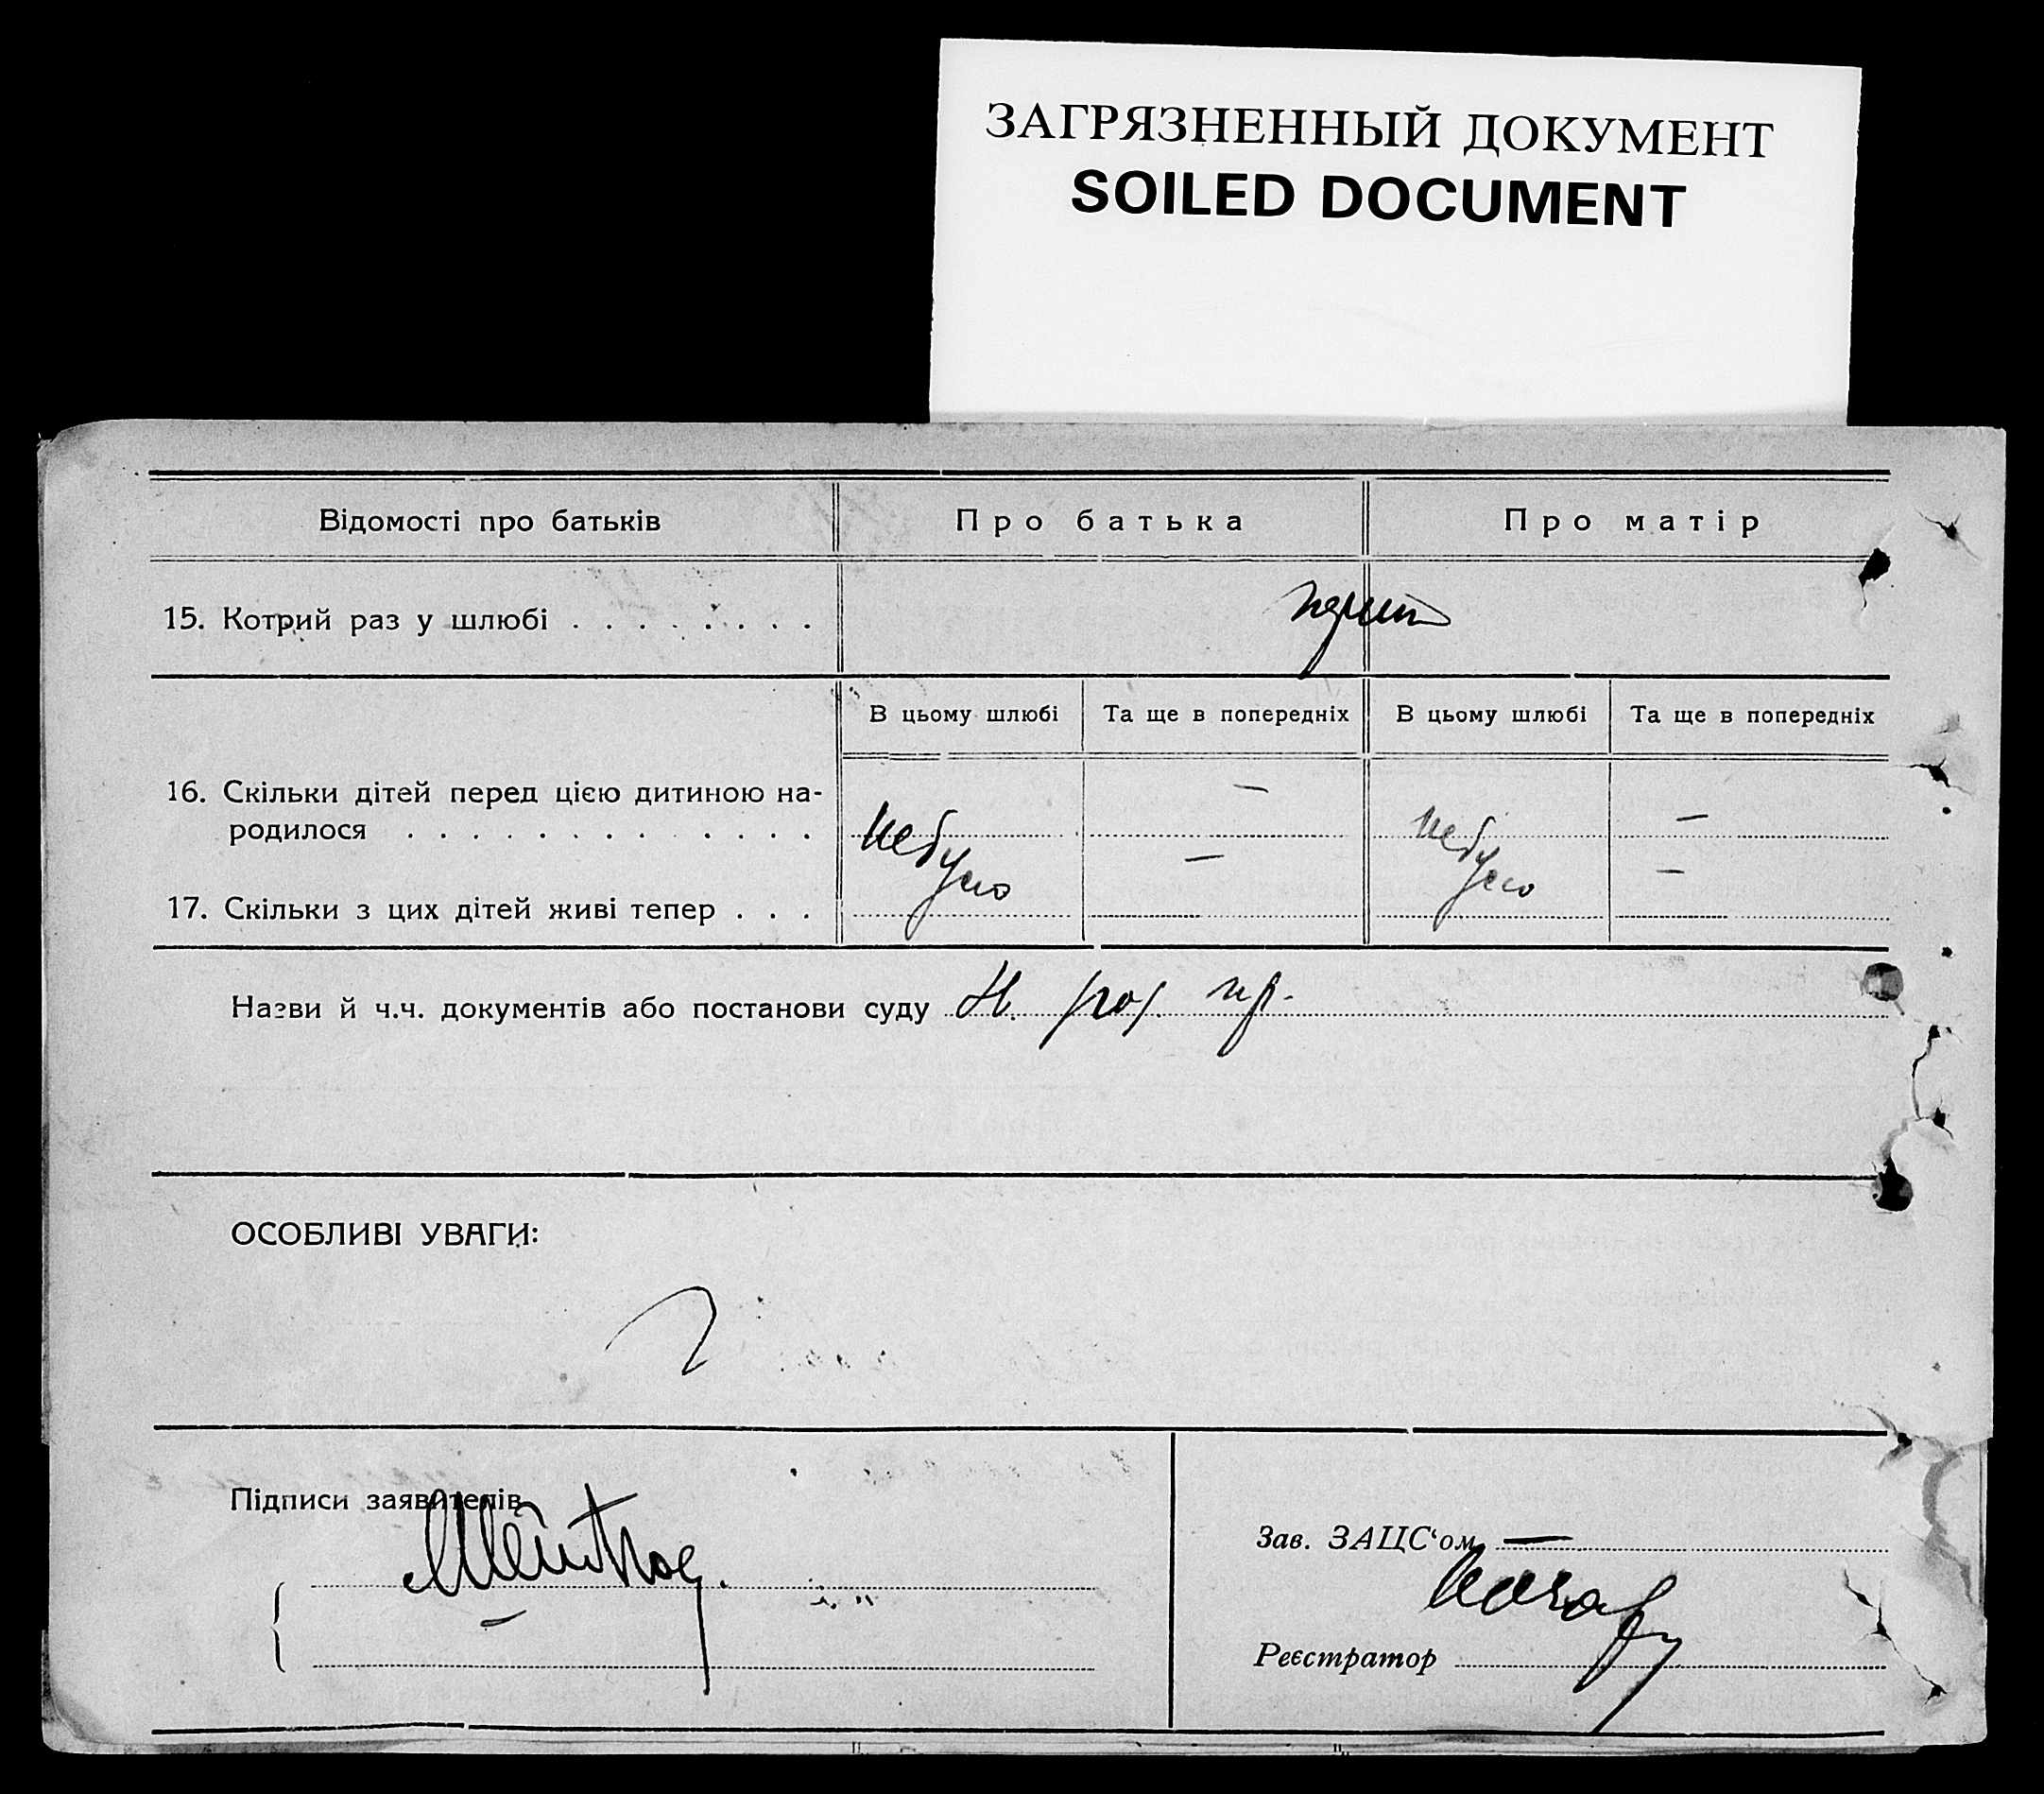 ЗАГРЯЗНЕННЫЙ ДОКУМЕНТ
SOILED DOCUMENT
Відомості про батьків
Про батька
Про матір
15. Котрий раз у шлюбі . . . . . . . .
В цьому шлюбі
Та ще в попередніх
В цьому шлюбі
Та ще в попередніх
16. Скільки дітей перед цією дитиною на-
родилося . . . . . . . . . . .
не було
—
не було
—
17. Скільки з цих дітей живі тепер . . .
—
—
Назви й ч.ч. документів або постанови суду
ОСОБЛИВІ УВАГИ:
Підписи заявителів
Зав. ЗАЦС‘ом —
—
Реєстратор